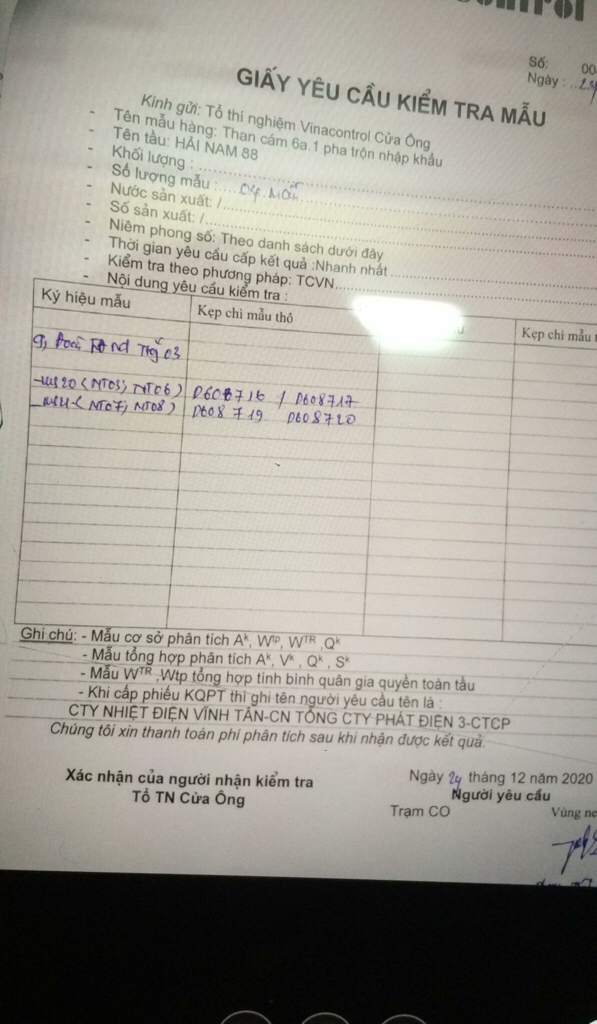 Số: 00
Ngày : 24
GIẤY YÊU CẦU KIỂM TRA MẪU
Kính gửi: Tổ thí nghiệm Vinacontrol Cửa Ông
- Tên mẫu hàng: Than cám 6a.1 pha trộn nhập khẩu
- Tên tầu: HẢI NAM 88
- Khối lượng :
- Số lượng mẫu :
- Nước sản xuất: /
- Số sản xuất: /
- Niêm phong số: Theo danh sách dưới đây
- Thời gian yêu cầu cấp kết quả :Nhanh nhất
- Kiểm tra theo phương pháp: TCVN
- Nội dung yêu cầu kiểm tra :
Ký hiệu mẫu Kẹp chì mẫu thô Kẹp chì mẫu
03
(NT05; NT06) D608716 / D608717
(NT07; NT08) D608719 D608720
Ghi chú: - Mẫu cơ sở phân tích Aᵏ, Wᵗᵖ, Wᵀᴿ ,Qᵏ
- Mẫu tổng hợp phân tích Aᵏ, Vᵏ , Qᵏ , Sᵏ
- Mẫu Wᵀᴿ ,Wtp tổng hợp tính bình quân gia quyền toàn tầu
- Khi cấp phiếu KQPT thì ghi tên người yêu cầu tên là :
CTY NHIỆT ĐIỆN VĨNH TÂN-CN TỔNG CTY PHÁT ĐIỆN 3-CTCP
Chúng tôi xin thanh toán phí phân tích sau khi nhận được kết quả.
Xác nhận của người nhận kiểm tra
Tổ TN Cửa Ông
Ngày 24 tháng 12 năm 2020
Người yêu cầu
Trạm CO Vùng